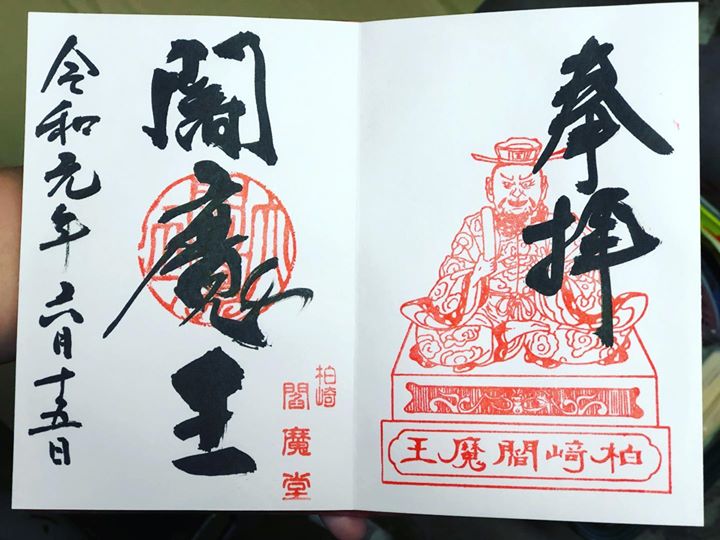 奉拝
柏﨑閻魔王
閻魔王
柏崎
閻魔堂
令和元年六月十五日